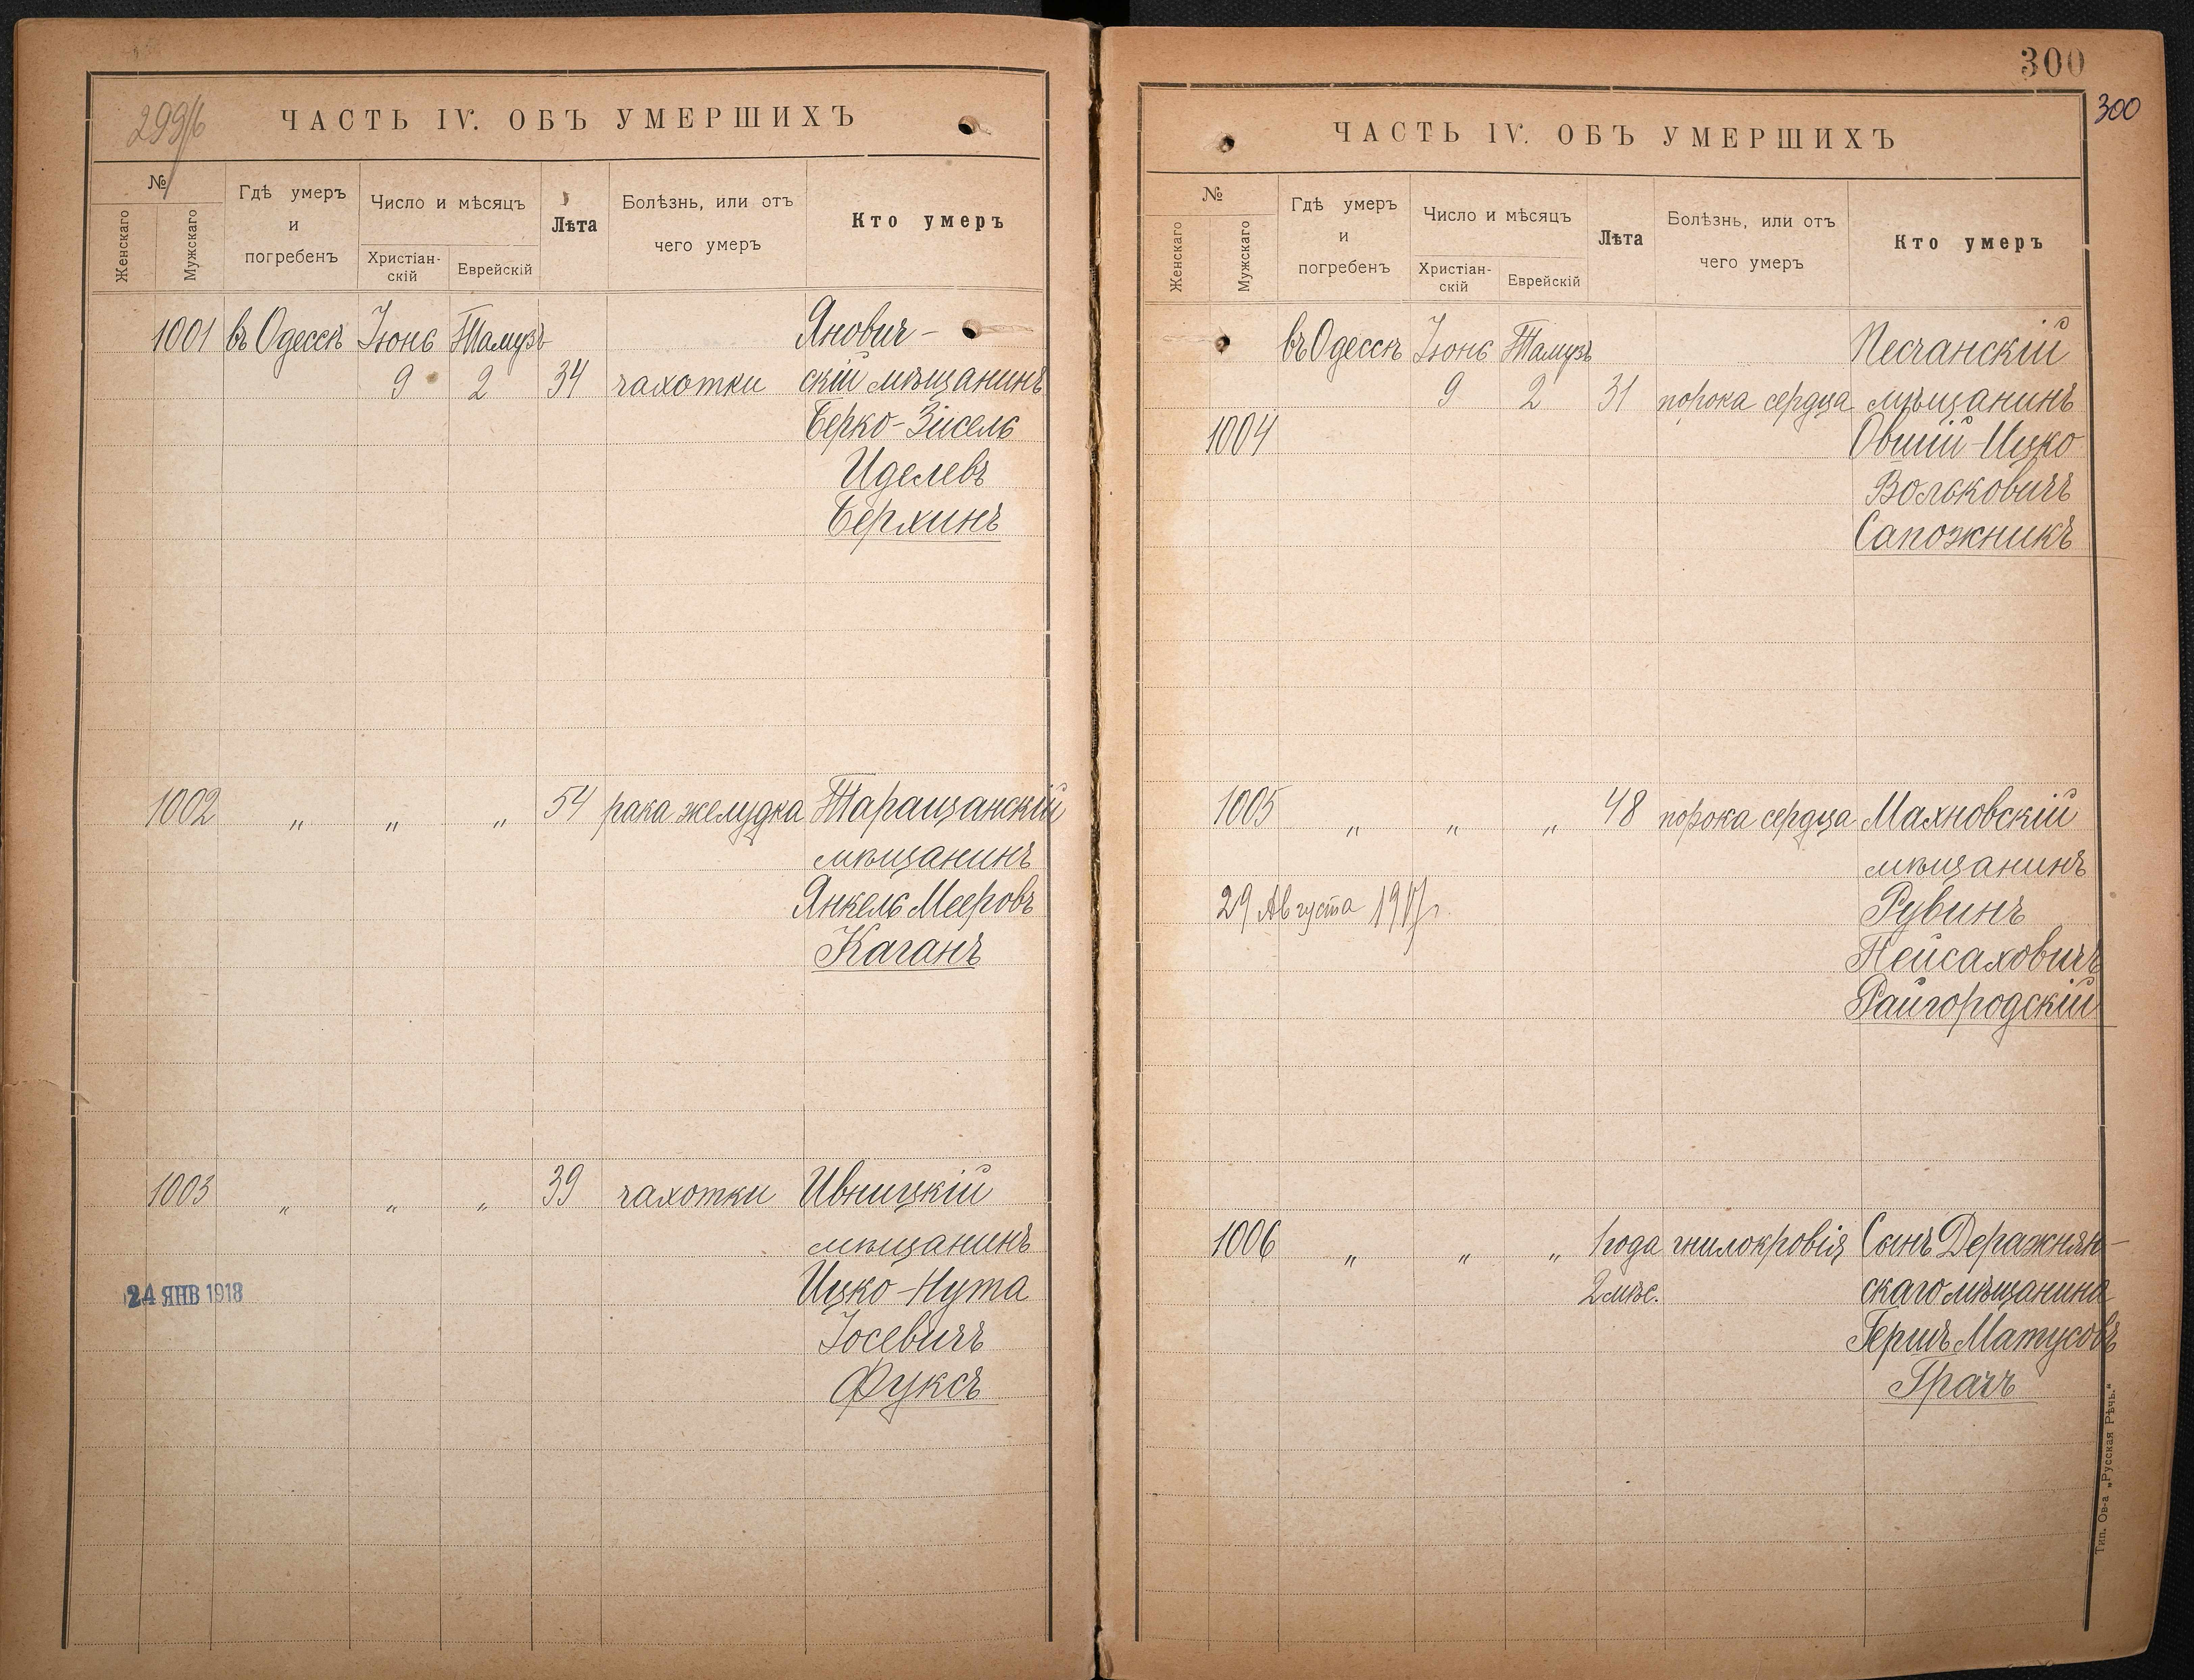 299/б
ЧАСТЬ IV. ОБЪ УМЕРШИХЪ
№
Женскаго
Мужскаго
Гдѣ умеръ
и
погребенъ
Число и мѣсяцъ
Христіан-
скій
Еврейскій
Лѣта
Болѣзнь, или отъ
чего умеръ
Кто умеръ
1001 въ Одессѣ Іюнь Тамузъ Янович-
9 2 34 чахотки скій мѣщанинъ
Берко-Зисель
Иделевъ
Берлинъ
1002 „ „ „ 54 рака желудка Таращанскій
мѣщанинъ
Янкель Мееровъ
Каганъ
1003 „ „ „ 39 чахотки Ивницкій
мѣщанинъ
24 ЯНВ 1918
Ицко-Нута
Іосевичъ
Фуксъ
300
300
ЧАСТЬ IV. ОБЪ УМЕРШИХЪ
№
Женскаго
Мужскаго
Гдѣ умеръ
и
погребенъ
Число и мѣсяцъ
Христіан-
скій
Еврейскій
Лѣта
Болѣзнь, или отъ
чего умеръ
Кто умеръ
въ Одессѣ Іюнь Тамузъ Песчанскій
9 2 31 порока сердца мѣщанинъ
1004 Овший-Ицко
Вольковичъ
Сапожникъ
1005 „ „ „ 48 порока сердца Махновскій
мѣщанинъ
29 Августа 1917г. Рувинъ
Пейсаховичъ
Райгородскій
1006 „ „ „ 1 года гнилокровія Сынъ Деражнян-
2 мѣс. скаго мѣщанина
Гершъ Матусовъ
Грачъ
Тип. Ов-а „Русская Рѣчь.“